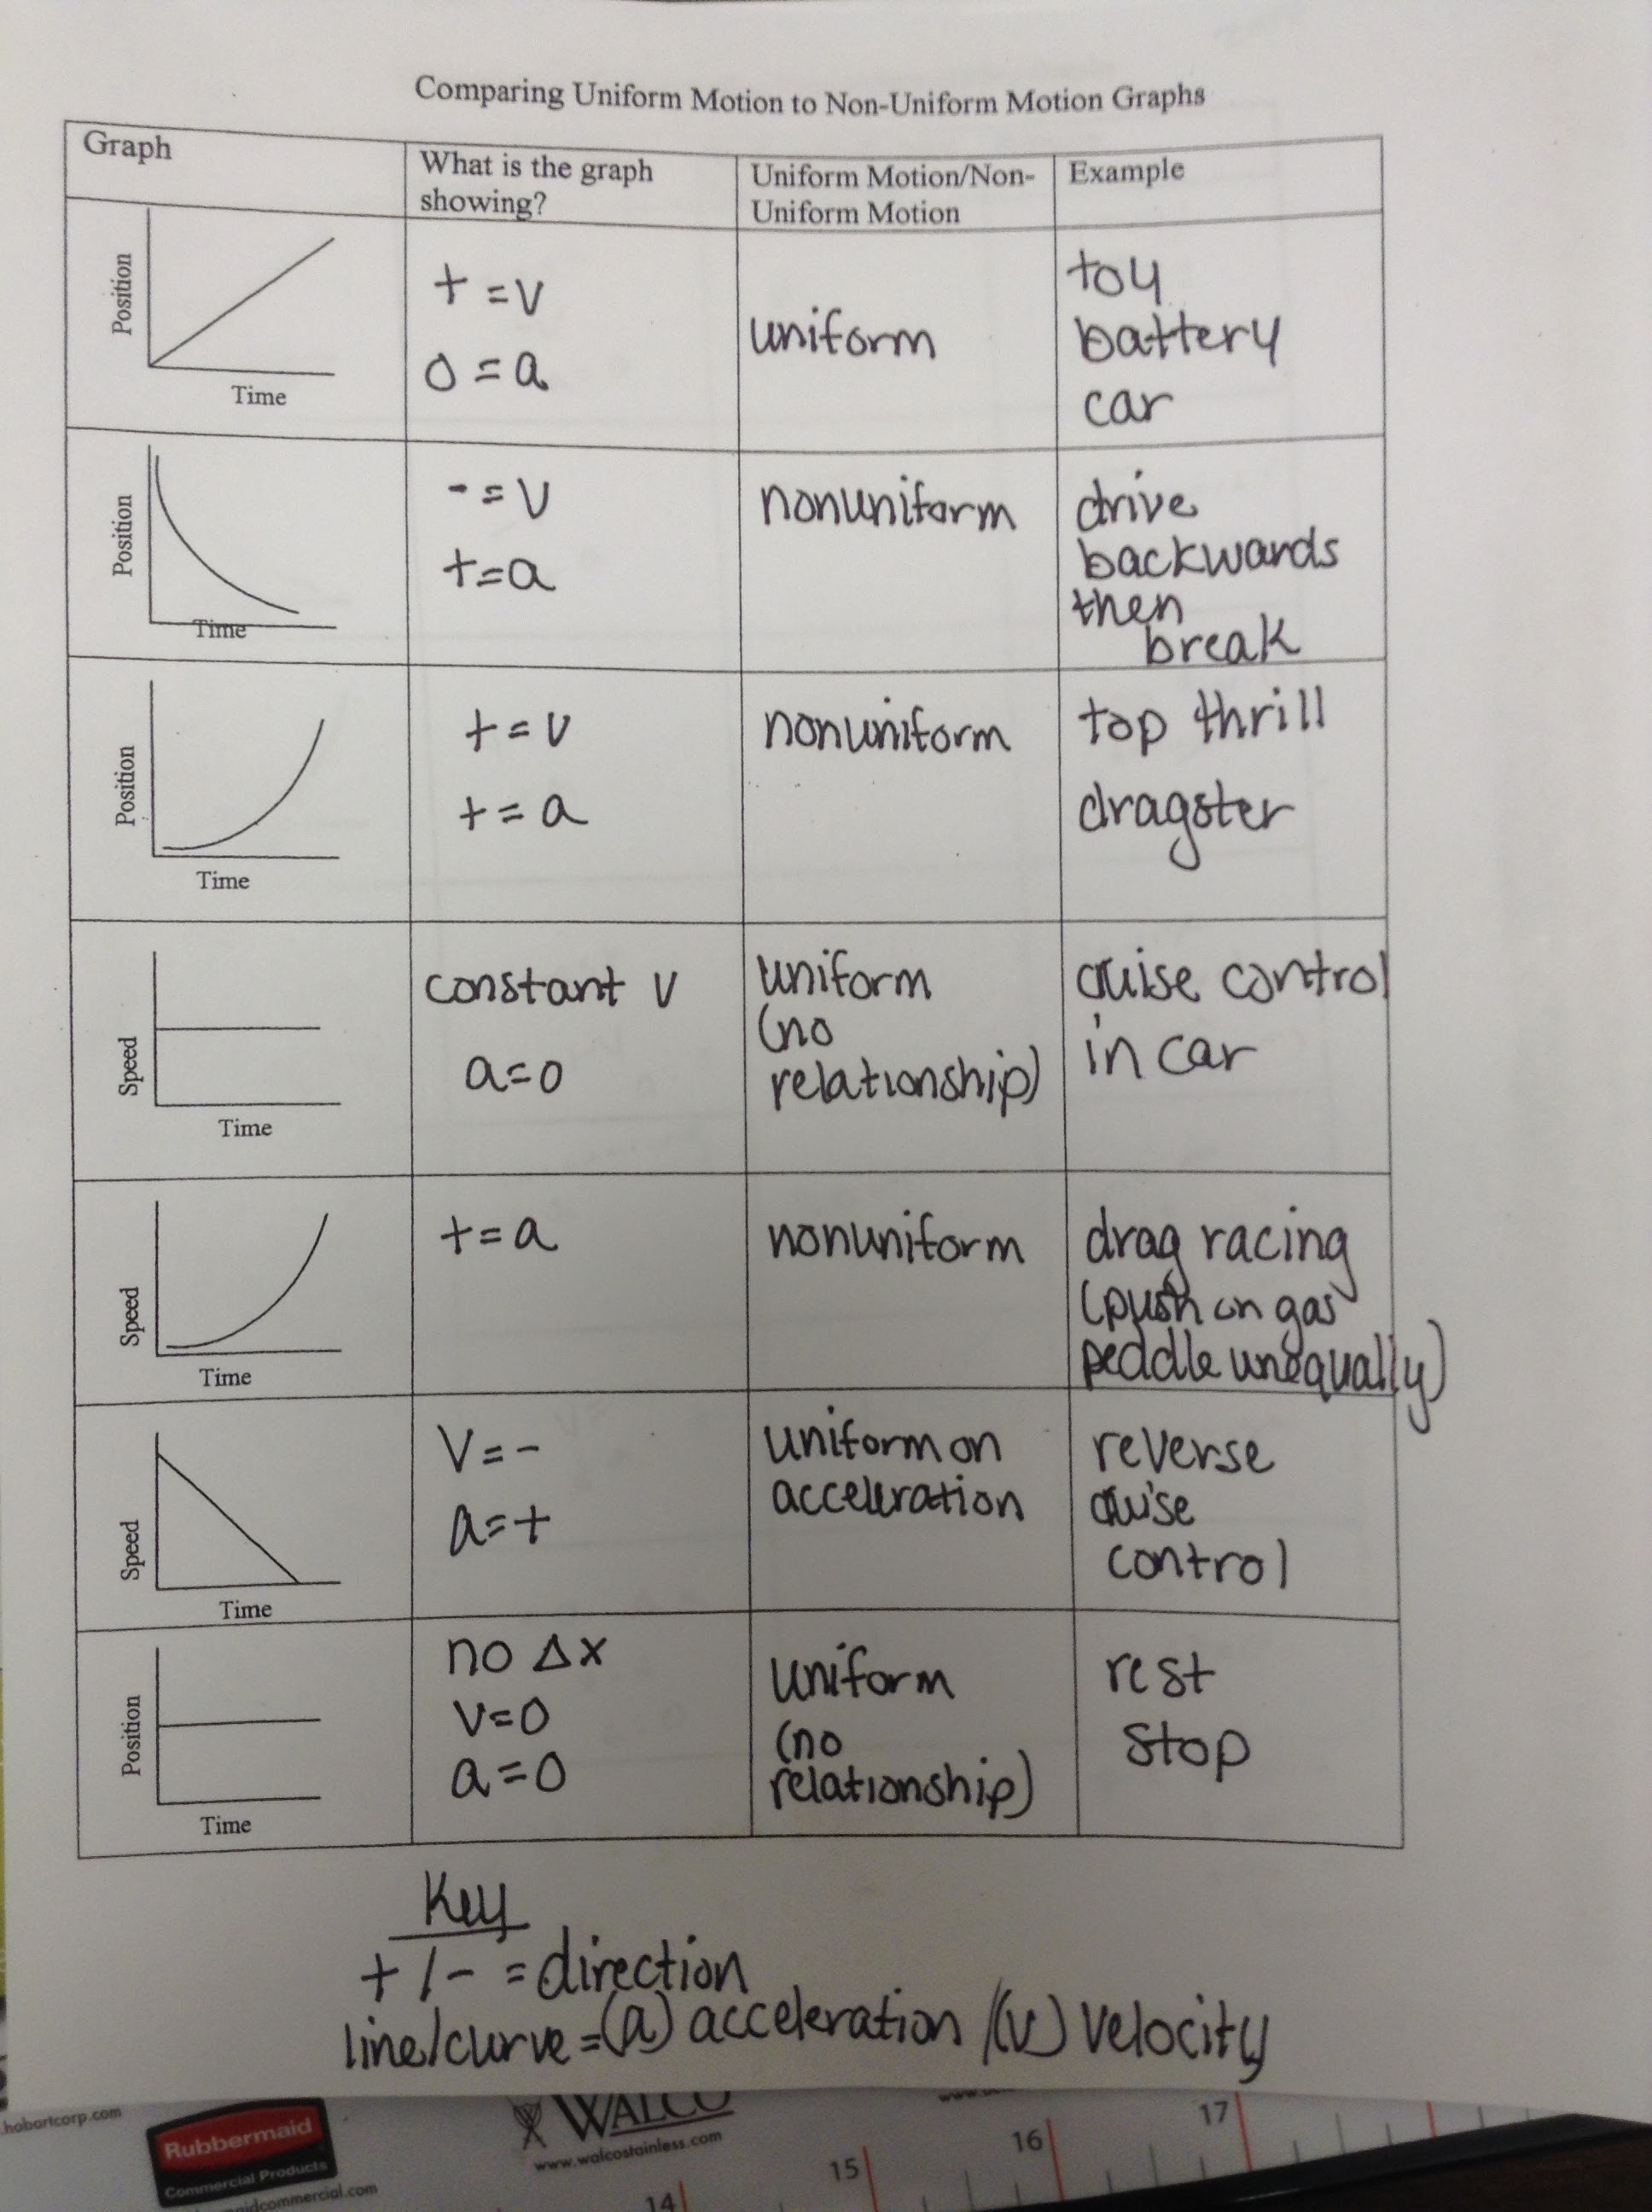 Comparing Uniform Motion to Non-Uniform Motion Graphs
Graph
What is the graph
showing?
Uniform Motion/Non-
Uniform Motion
Example
Position
Time
+ = v
0 = a
uniform
toy
battery
car
Position
Time
- = v
+ = a
nonuniform
drive
backwards
then
break
Position
Time
+ = v
+ = a
nonuniform
top thrill
dragster
Speed
Time
constant v
a=0
uniform
(no
relationship)
cruise control
in car
Speed
Time
+ = a
nonuniform
drag racing
(push on gas
peddle unequally)
Speed
Time
V = -
a = +
uniform on
acceleration
reverse
cruise
control
Position
Time
no Δx
v=0
a=0
uniform
(no
relationship)
rest
stop
Key
+ / - = direction
line/curve = (a) acceleration /(v) velocity
.hobartcorp.com
Rubbermaid
Commercial Products
WALCO
www.walcostainless.com
14
15
16
17